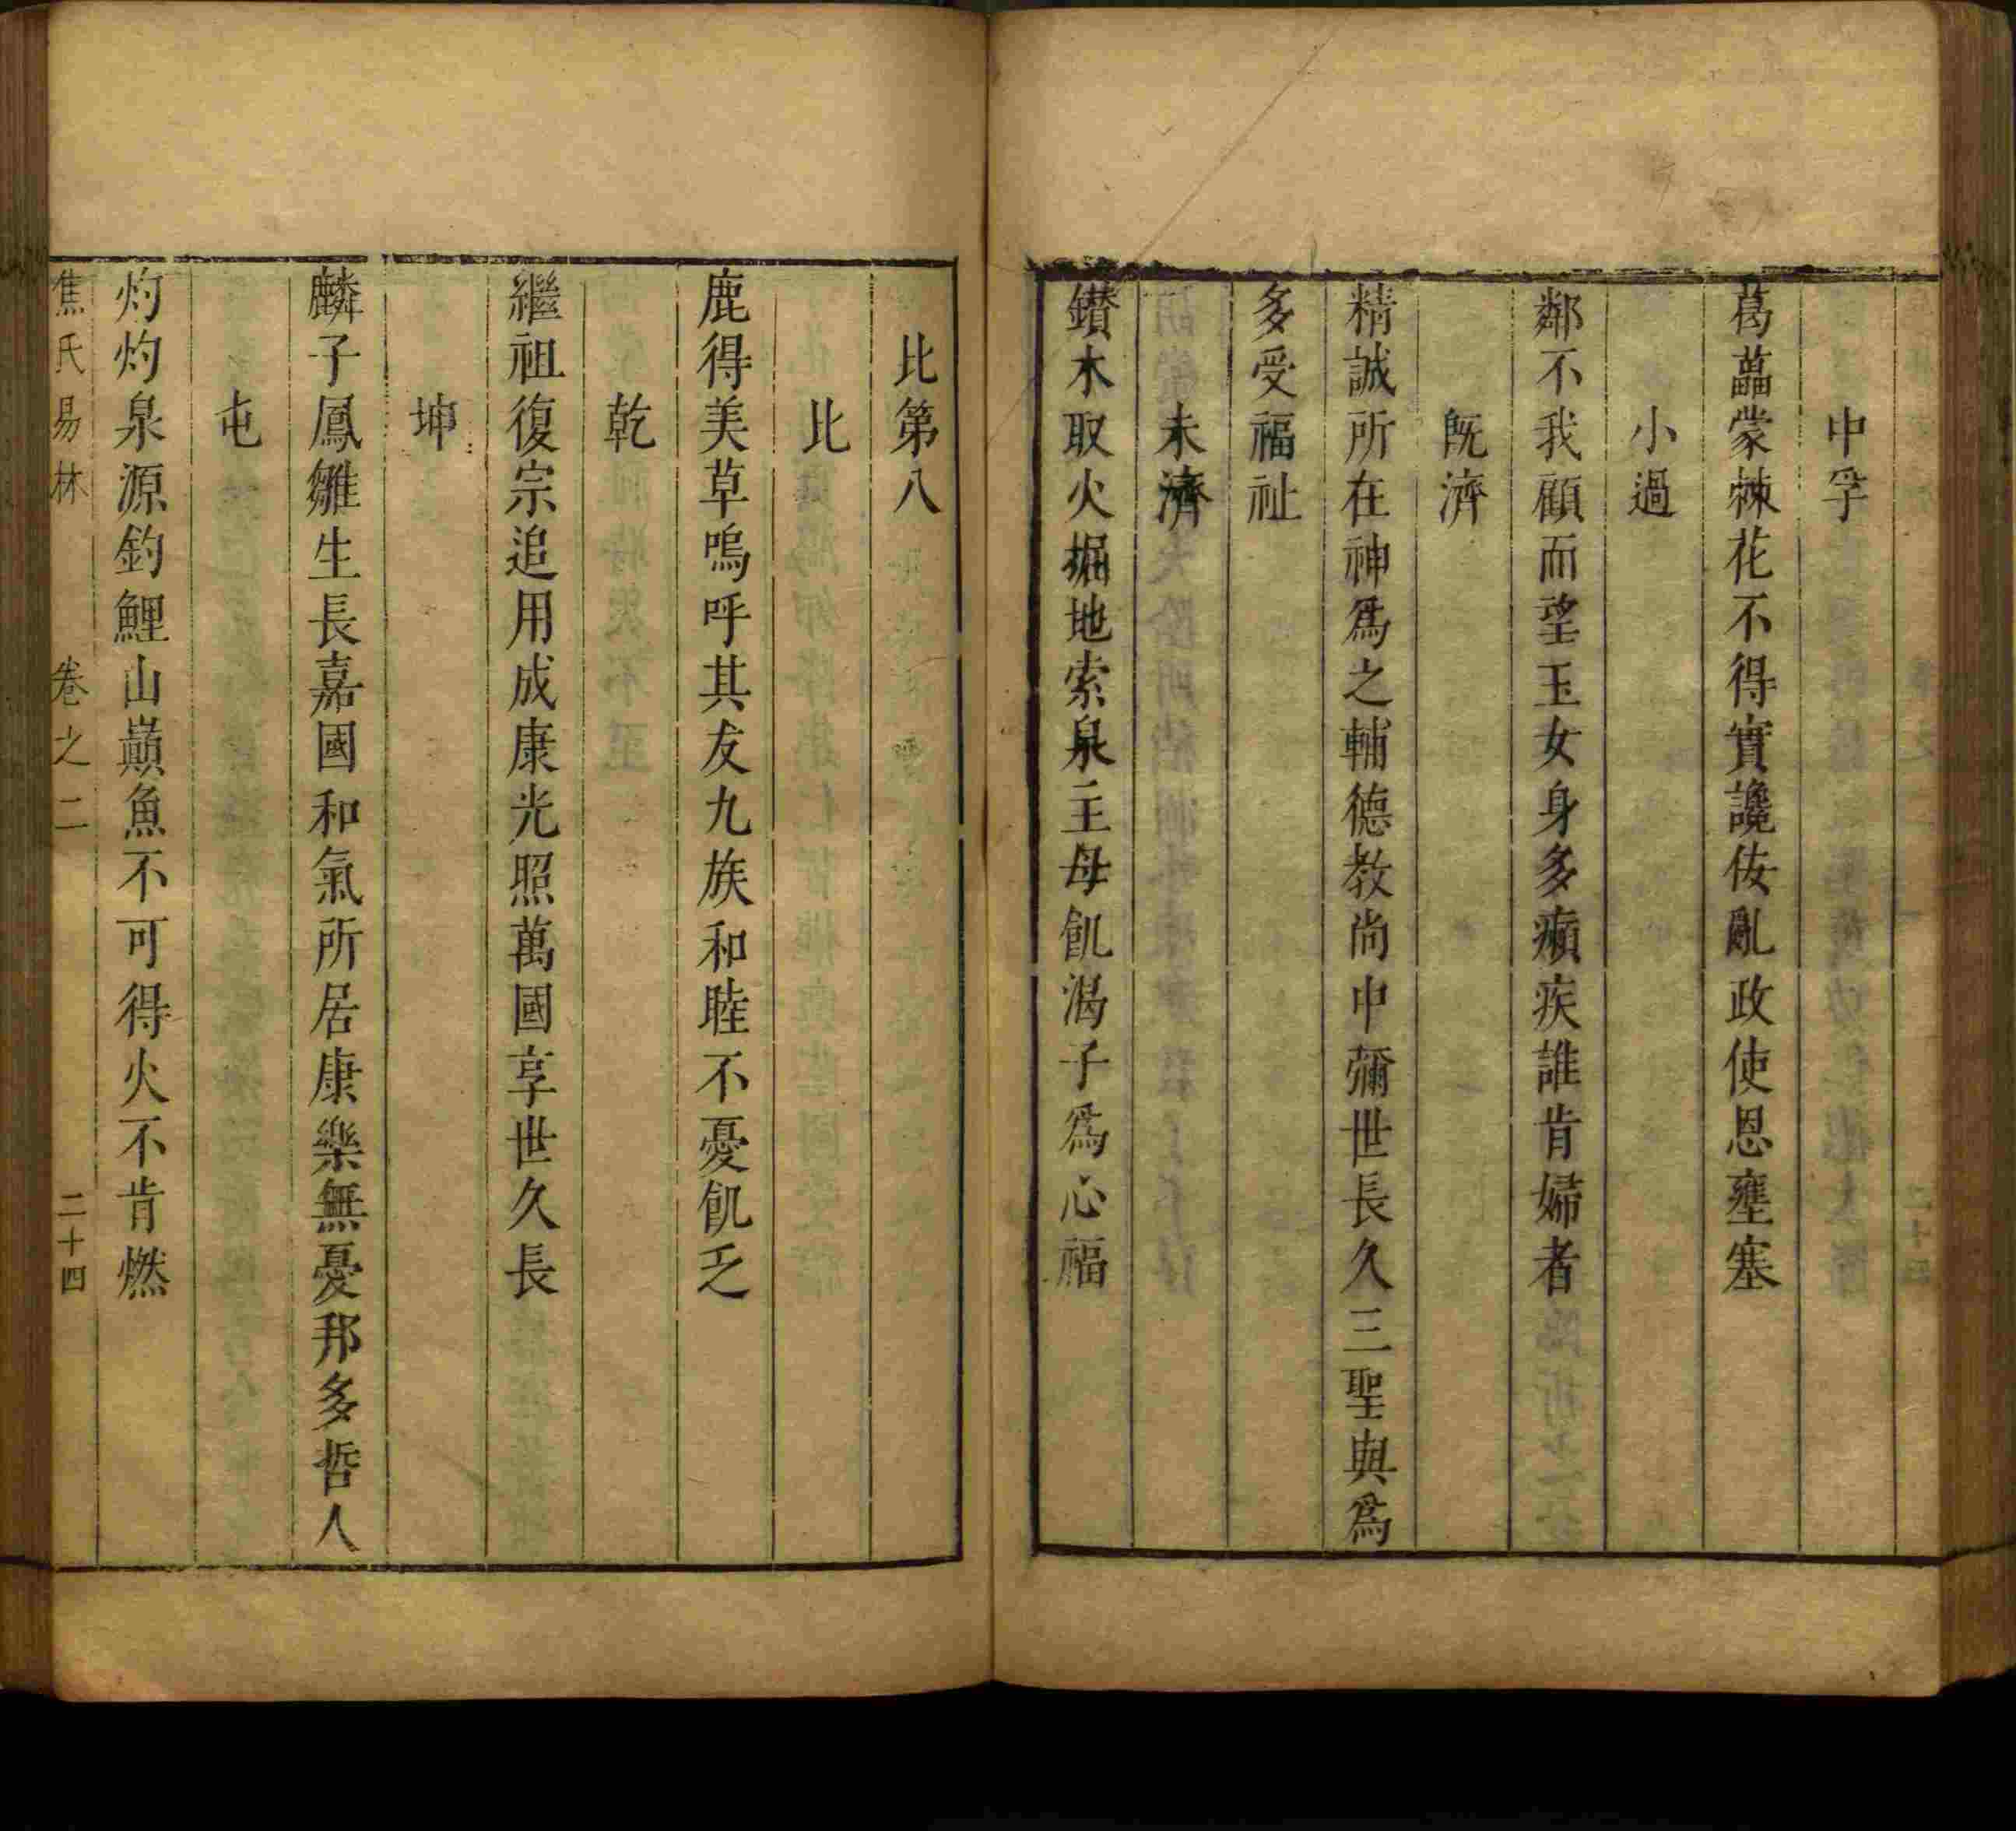 中孚
葛藟蒙棘花不得實讒佞亂政使恩壅塞
小過
鄰不我顧而望玉女身多癩疾誰肯婦者
既濟
精誠所在神爲之輔德教尚中彌世長久三聖與爲
多受福祉
未濟
鑚木取火掘地索泉主母飢渴子爲心福
比第八
比
鹿得美草嗚呼其友九族和睦不憂飢乏
乾
繼祖復宗追用成康光照萬國享世久長
坤
麟子鳳雛生長嘉國和氣所居康樂無憂邦多哲人
屯
灼灼泉源釣鯉山巔魚不可得火不肯燃
焦氏易林 卷之二 二十四